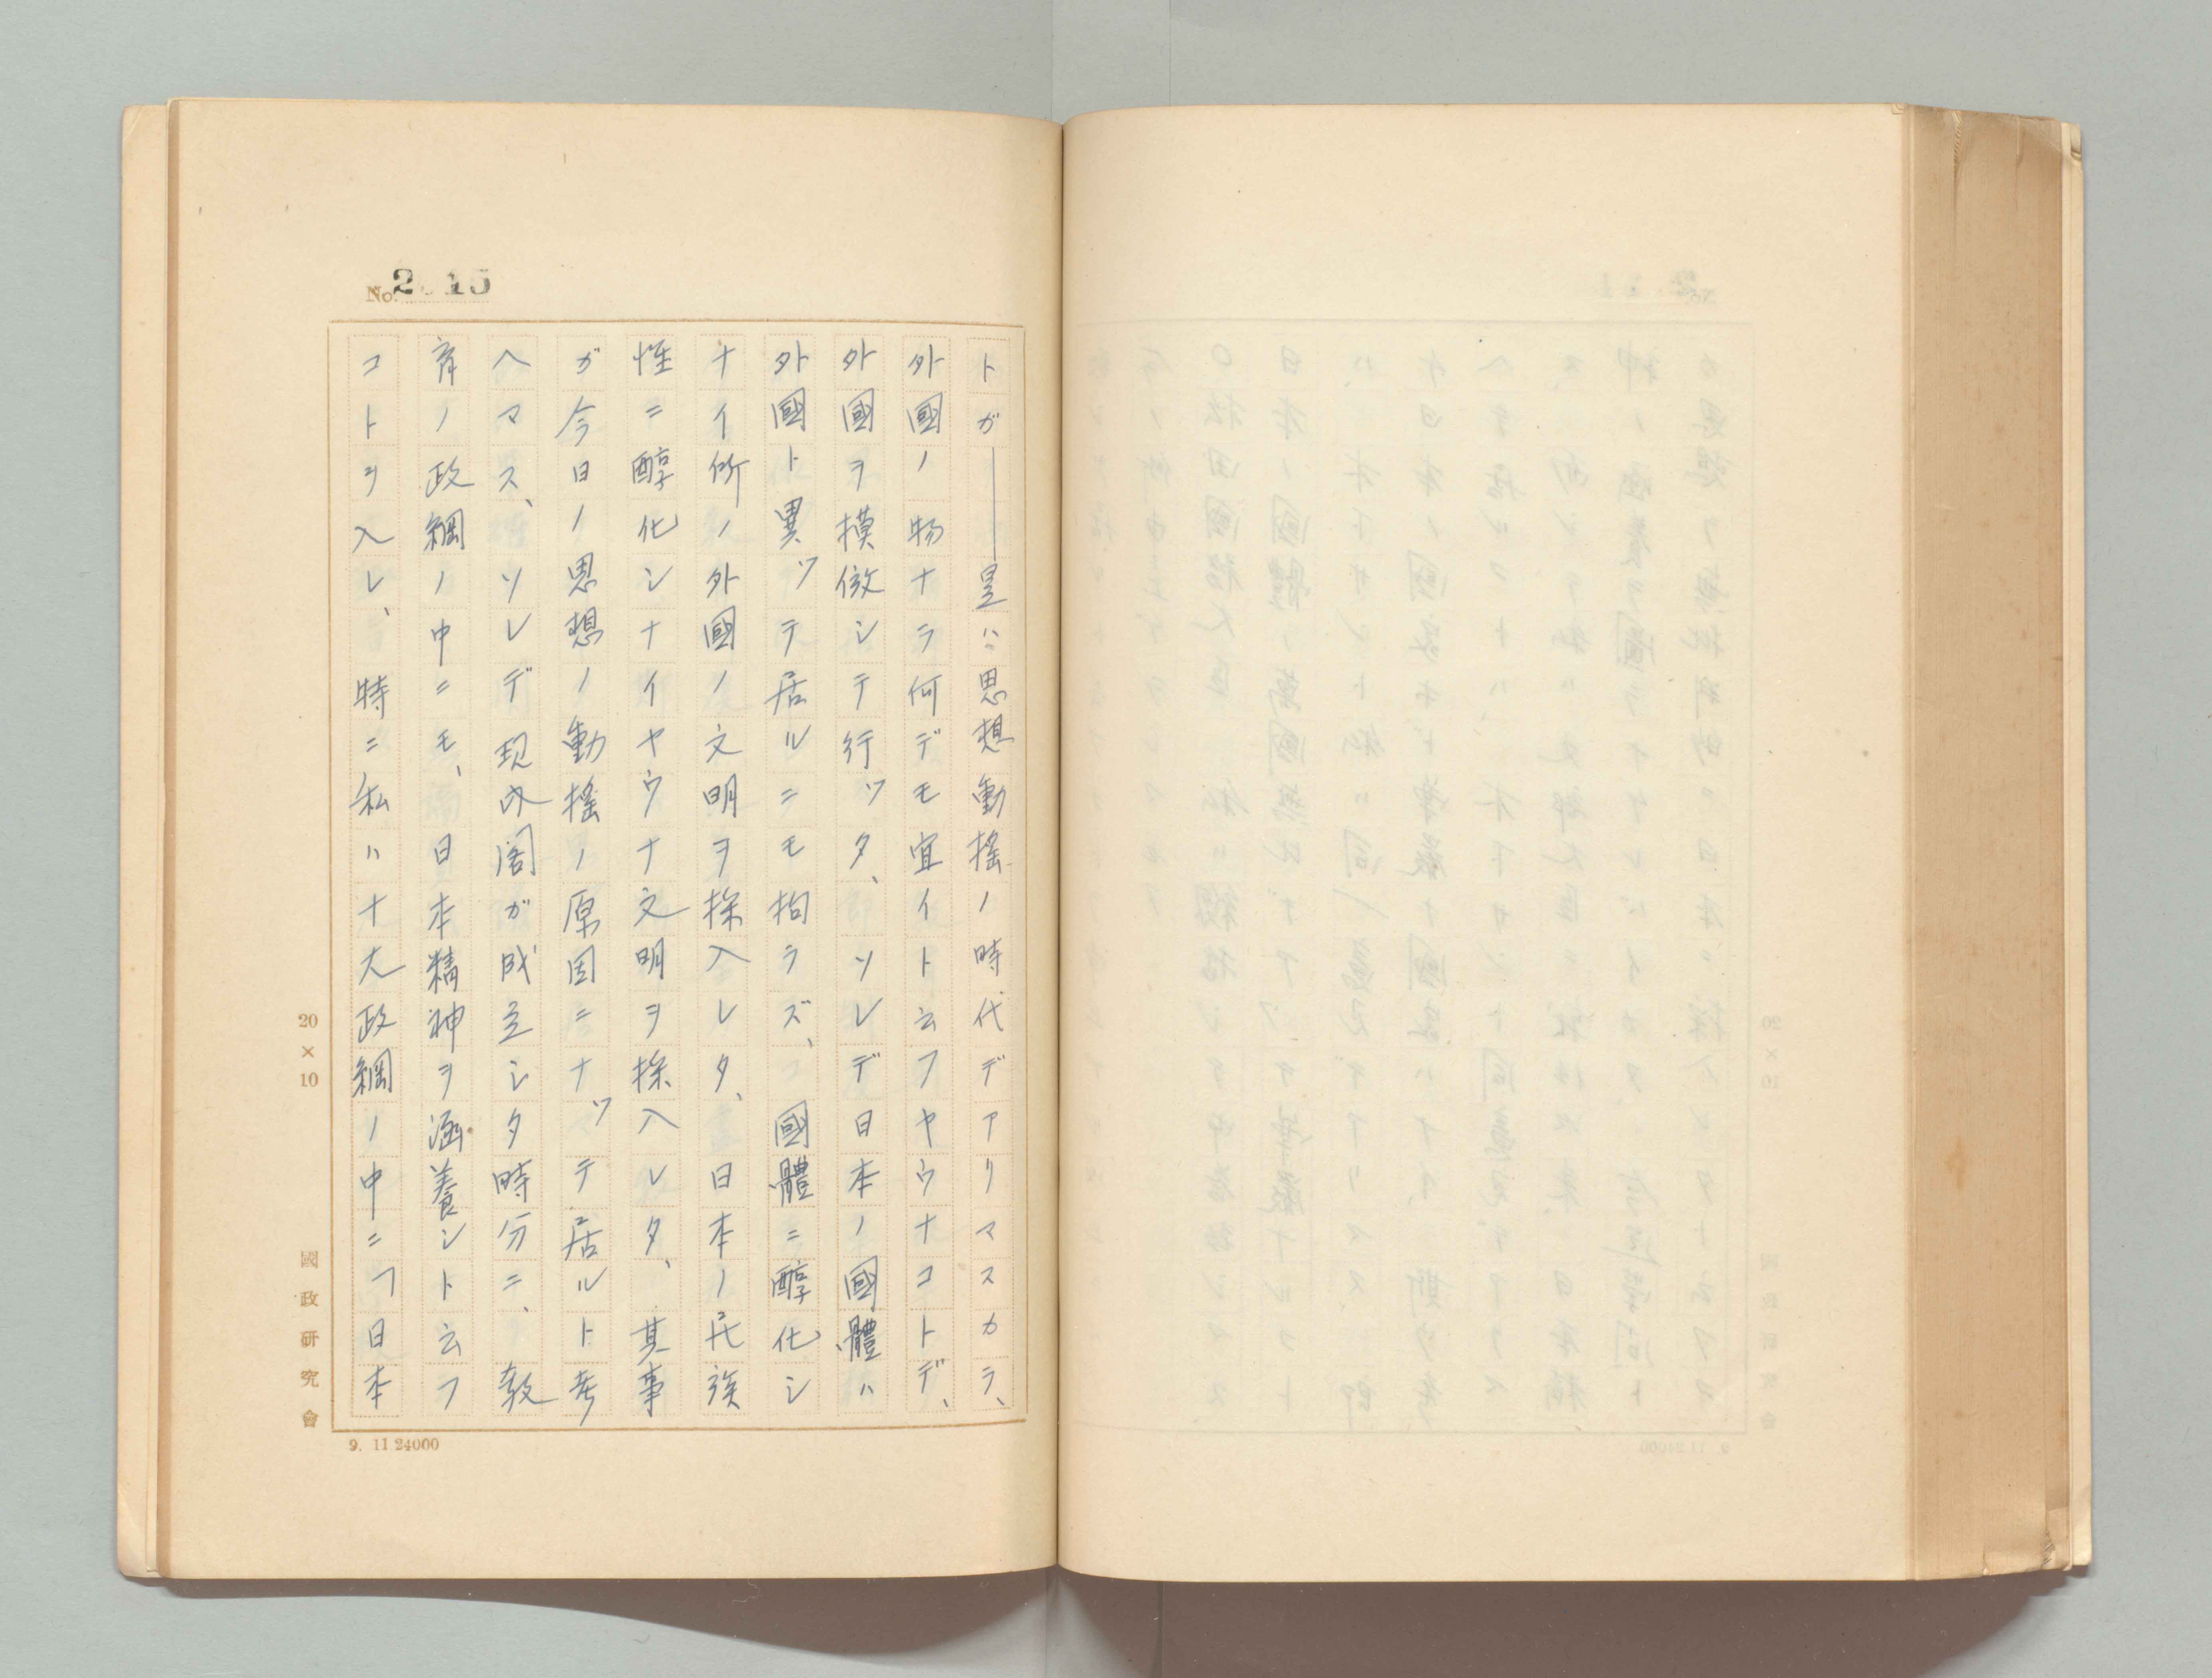 No. 2.15
トガ――是ハ思想動搖ノ時代デアリマスカラ、
外國ノ物ナラ何デモ宜イト云フヤウナコトデ、
外國ヲ模倣シテ行ツタ、ソレデ日本ノ國體ハ
外國ト異ツテ居ルニモ拘ラズ、國體ニ醇化シ
ナイ所ノ外國ノ文明ヲ採入レタ、日本ノ民族
性ニ醇化シナイヤウナ文明ヲ採入レタ、其事
ガ今日ノ思想ノ動搖ノ原因ニナツテ居ルト考
ヘマス、ソレデ現内閣ガ成立シタ時分ニ、教
育ノ政綱ノ中ニモ、日本精神ヲ涵養シト云フ
コトヲ入レ、特ニ私ハ十大政綱ノ中ニ「日本
20×10
國政研究會
9. 11 24000